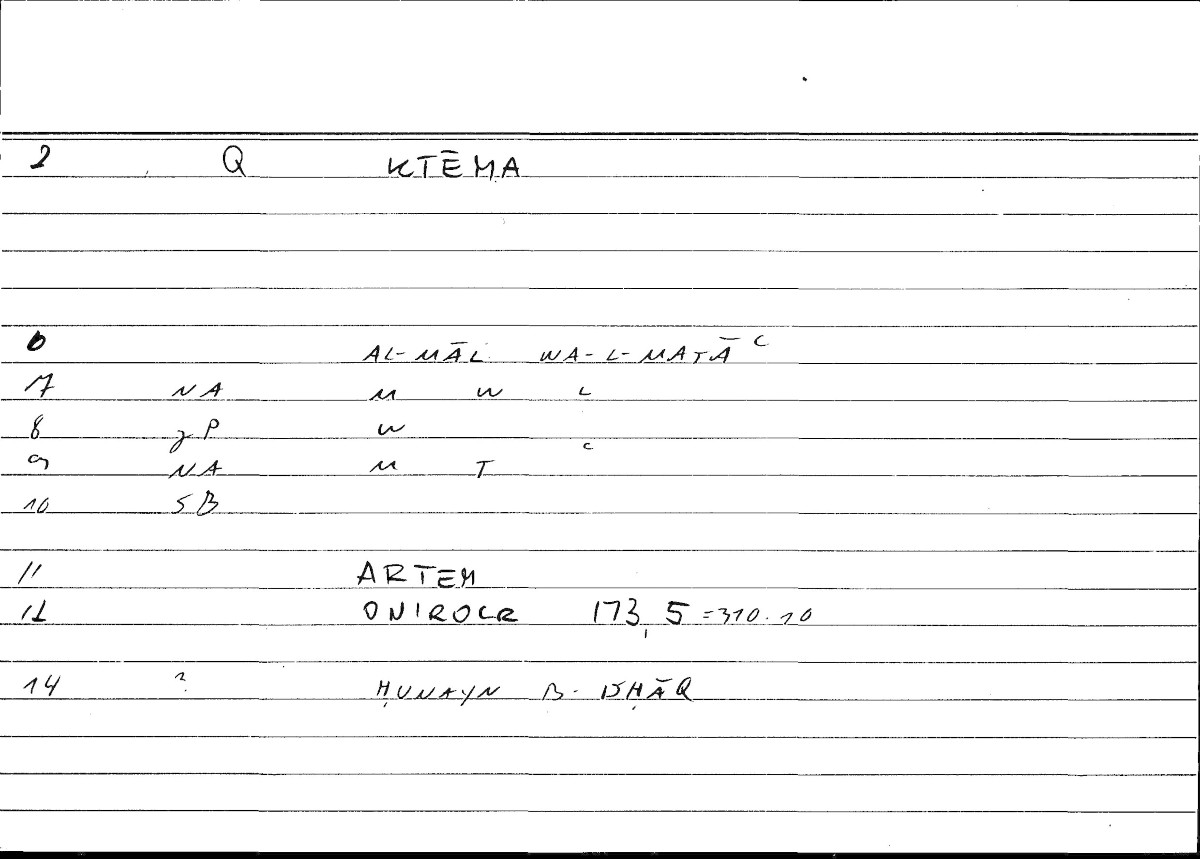 2 Q KTĒMA
6 AL-MĀL WA-L-MATĀʿ
7 NA M W L
8 gP W
9 NA M T ʿ
10 SB
11 ARTEM
12 ONIROCR 173,5 =310.10
14 ? ḤUNAYN B- ISḤĀQ